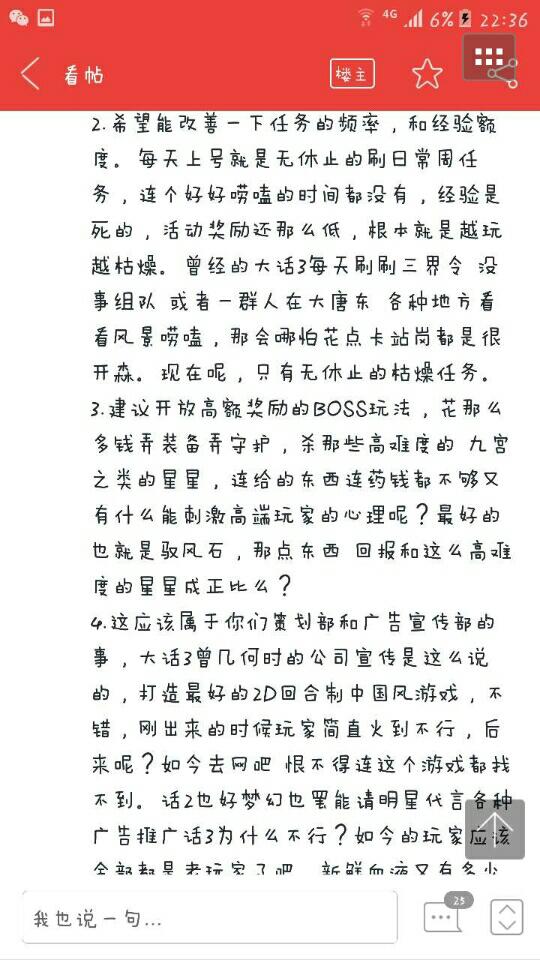 4G 6% 22:36
看帖 楼主
2.希望能改善一下任务的频率，和经验额
度。每天上号就是无休止的刷日常周任
务，连个好好唠嗑的时间都没有，经验是
死的，活动奖励还那么低，根本就是越玩
越枯燥。曾经的大话3每天刷刷三界令 没
事组队 或者一群人在大唐东 各种地方看
看风景唠嗑，那会哪怕花点卡站岗都是很
开森。现在呢，只有无休止的枯燥任务。
3.建议开放高额奖励的BOSS玩法，花那么
多钱弄装备弄守护，杀那些高难度的 九宫
之类的星星，连给的东西连药钱都不够又
有什么能刺激高端玩家的心理呢？最好的
也就是驭风石，那点东西 回报和这么高难
度的星星成正比么？
4.这应该属于你们策划部和广告宣传部的
事，大话3曾几何时的公司宣传是这么说
的，打造最好的2D回合制中国风游戏，不
错，刚出来的时候玩家简直火到不行，后
来呢？如今去网吧 恨不得连这个游戏都找
不到。话2也好梦幻也罢能请明星代言各种
广告推广话3为什么不行？如今的玩家应该
全部都是老玩家了吧，新鲜血液又有多少
我也说一句... 25